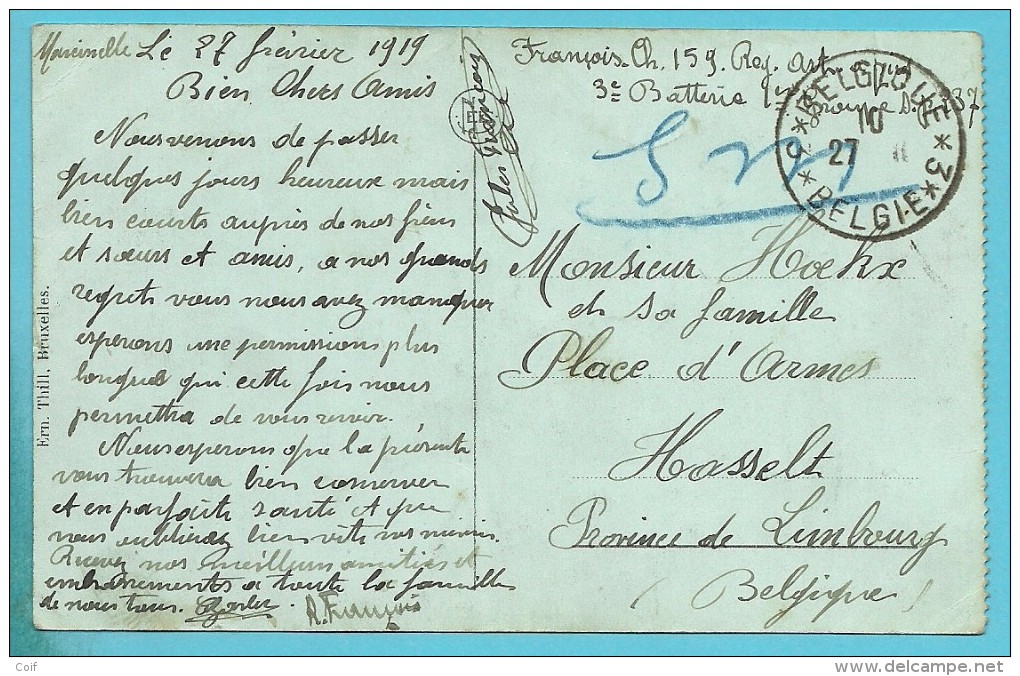 Marcinelle Le 27 février 1919
Bien Chers Amis
Nous venons de passer
quelques jours heureux mais
bien courts auprès de nos frères
et sœurs et amis, a nos grands
regrets vous nous avez manquer
esperons une permissions plus
longues qui cette fois nous
permettra de vous revoir.
Nous esperons que la présente
vous trouvera bien conserver
et en parfaite santé et que
vous oublierez bien vite vos
Recevez nos meilleurs amitiés et
embrassements a toute la famille
de nous tous. 
R. François
Jules François
Ern. Thill, Bruxelles.
François Ch. 159. Reg. Art.
3e Batterie Groupe D. 137
S M
*BELGIQUE*3*
10
27 II
*BELGIE*
Monsieur Hoekx
et sa famille
Place d'Armes
Hasselt
Province de Limbourg
(Belgique)
Coif
delcampe.net